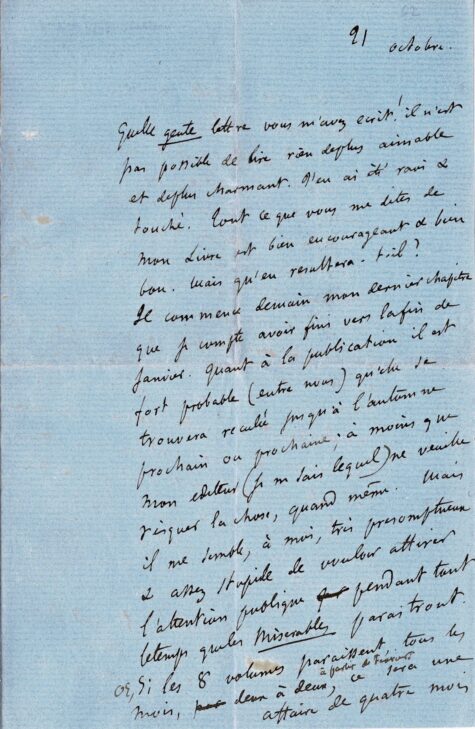 62
21 octobre.
Quelle gente lettre vous m'avez écrit! il n'est
pas possible de lire rien de plus aimable
et de plus charmant. J'en ai été ravi &
touché. Tout ce que vous me dites de
mon Livre est bien encourageant & bien
bon. mais qu'en resultera-t-il?
Je commence demain mon dernier chapitre
que je compte avoir fini vers la fin de
Janvier. quant à la publication il est
fort probable (entre nous) qu'elle se
trouvera reculée jusqu'à l'automne
prochain ou prochaine; à moins que
mon editeur (je ne sais lequel) ne veuille
risquer la chose, quand même. mais
il me semble, à moi, très presomptueux
& assez stupide de vouloir attirer
l'attention publique pendant tout
le temps que les Miserables paraitront
Or, Si les 8 volumes paraissent tous les
à partir de Février
mois, deux à deux, ce sera une
affaire de quatre mois